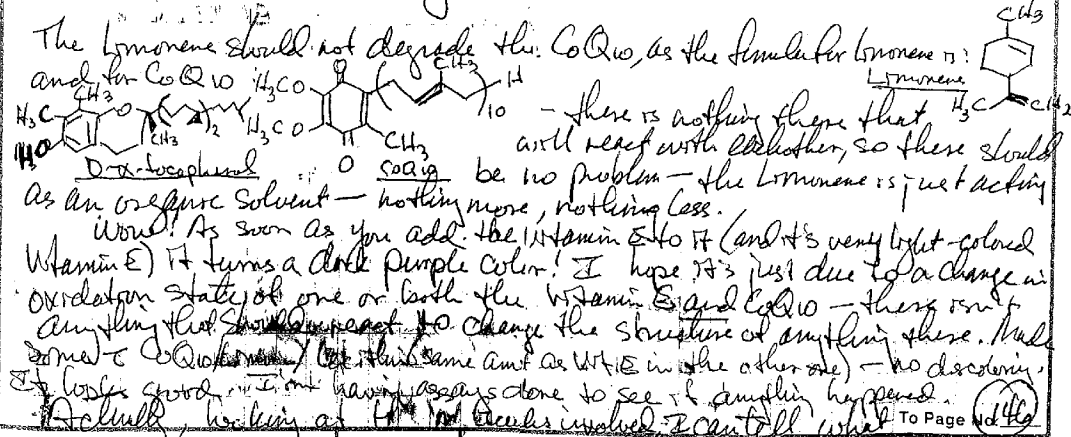 CH3
The Limonene should not degrade the CoQ10, as the formula for Limonene is:
Limonene
H3C CH2
and for CoQ10 H3CO O CH3 H 10
H3C CH3 O CH3 2 H3CO CH3 O
HO
D-α-tocopherol CoQ10
- there is nothing there that
will react with eachother, so there should
be no problem - the Limonene is just acting
as an organic solvent - nothing more, nothing less.
Wow! As soon as you add the Vitamin E to it (and it's very light-colored
Vitamin E) it turns a dark purple color! I hope it's just due to a change in
oxidation state of one or both the Vitamin E and CoQ10 - there isn't
anything that should react to change the structure of anything there. Made
some c̄ CoQ10 same amt as Vit E in the other one) - no discoloring.
It looks good. I am having assays done to see if anything happened.
Actually, looking at the molecules involved, I can tell what
To Page No. 146